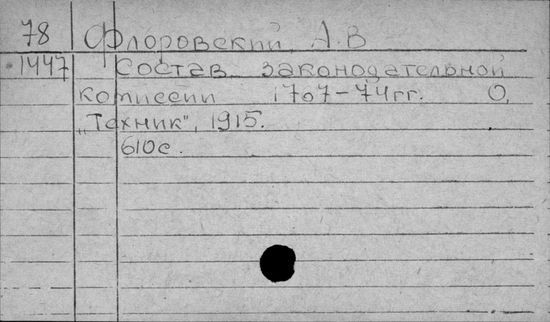 78 Флоровский, А.В
1447 Состав законодательной
комиссии 1767-74гг. О,
„Техник", 1915.
610с.